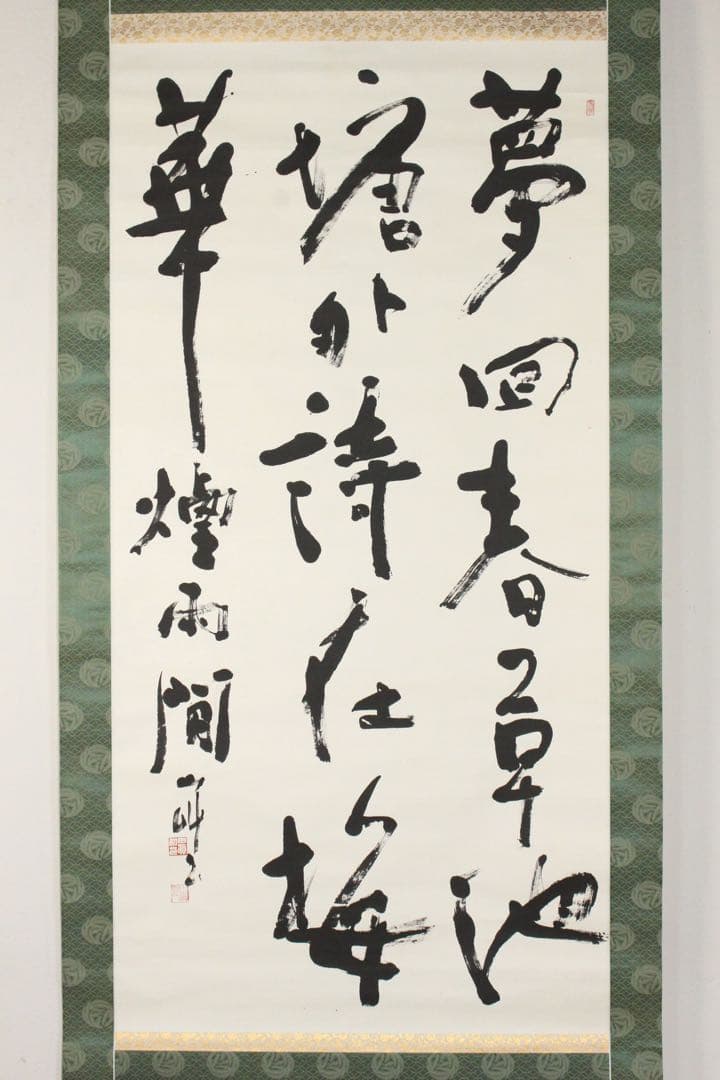 夢回春草池
塘外詩在梅
華煙雨間